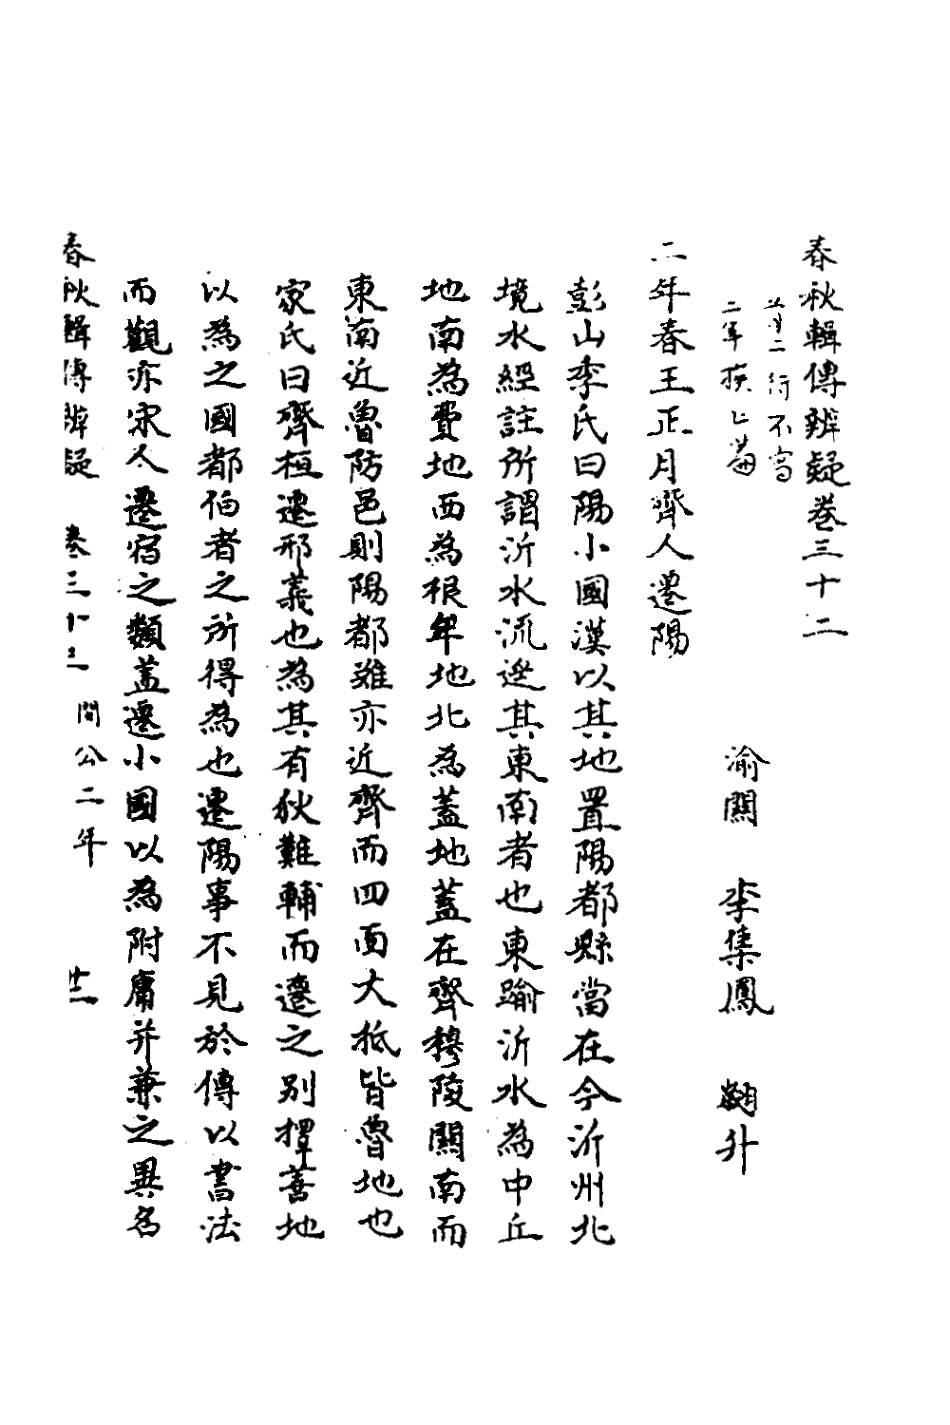 春秋輯傳辨疑卷三十二
二行不寫
二年
渝關　李集鳳　翽升
二年春王正月齊人遷陽
彭山季氏曰陽小國漢以其地置陽都縣當在今沂州北
境水經註所謂沂水流逕其東南者也東踰沂水為中丘
地南為費地西為根牟地北為蓋地蓋在齊穆陵關南而
東南近魯防邑則陽都雖亦近齊而四面大抵皆魯地也
家氏曰齊桓遷邢義也為其有狄難輔而遷之別擇善地
以為之國都伯者之所得為也遷陽事不見於傳以書法
而觀亦宋人遷宿之類蓋遷小國以為附庸并兼之異名
春秋輯傳辨疑　卷三十二　閔公二年